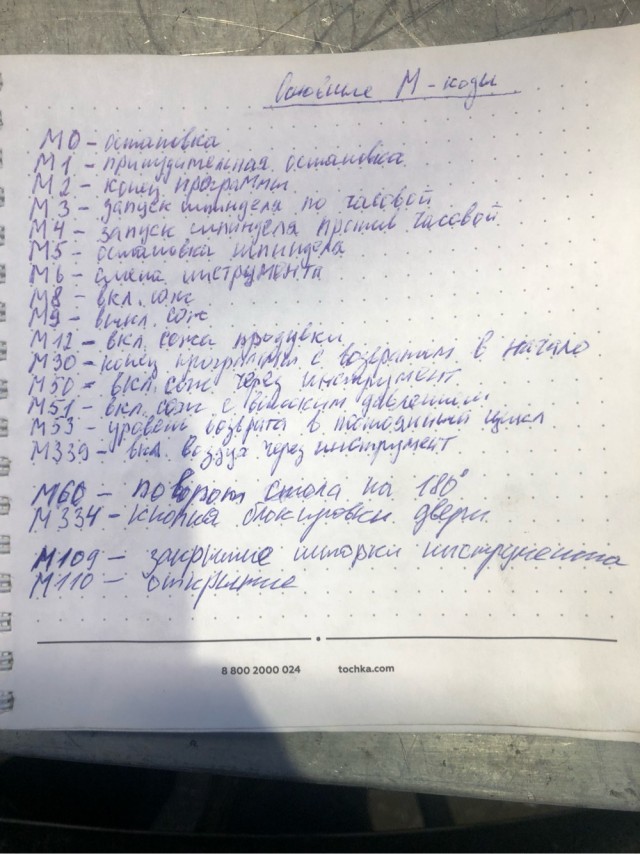 М - коды
М0 - остановка
М1 - принудительная остановка
М2 - конец программы
М3 - запуск шпинделя по часовой
М4 - запуск шпинделя против часовой
М5 - остановка шпинделя
М6 - смена инструмента
М8 - вкл. сож
М9 - выкл. сож
М12 - вкл. сожа продувки
М30 - конец программы с возвратом в начало
М50 - вкл. сож через инструмент
М51 - вкл. сож с высоким давлением.
М53 - уровень возврата в постоянный цикл
М339 - вкл. воздух через инструмент
М60 - поворот стола на 180°
М334 - кнопка блокировки двери.
М109 - закрытие шторки инструмента
М110 - открытие
8 800 2000 024 tochka.com